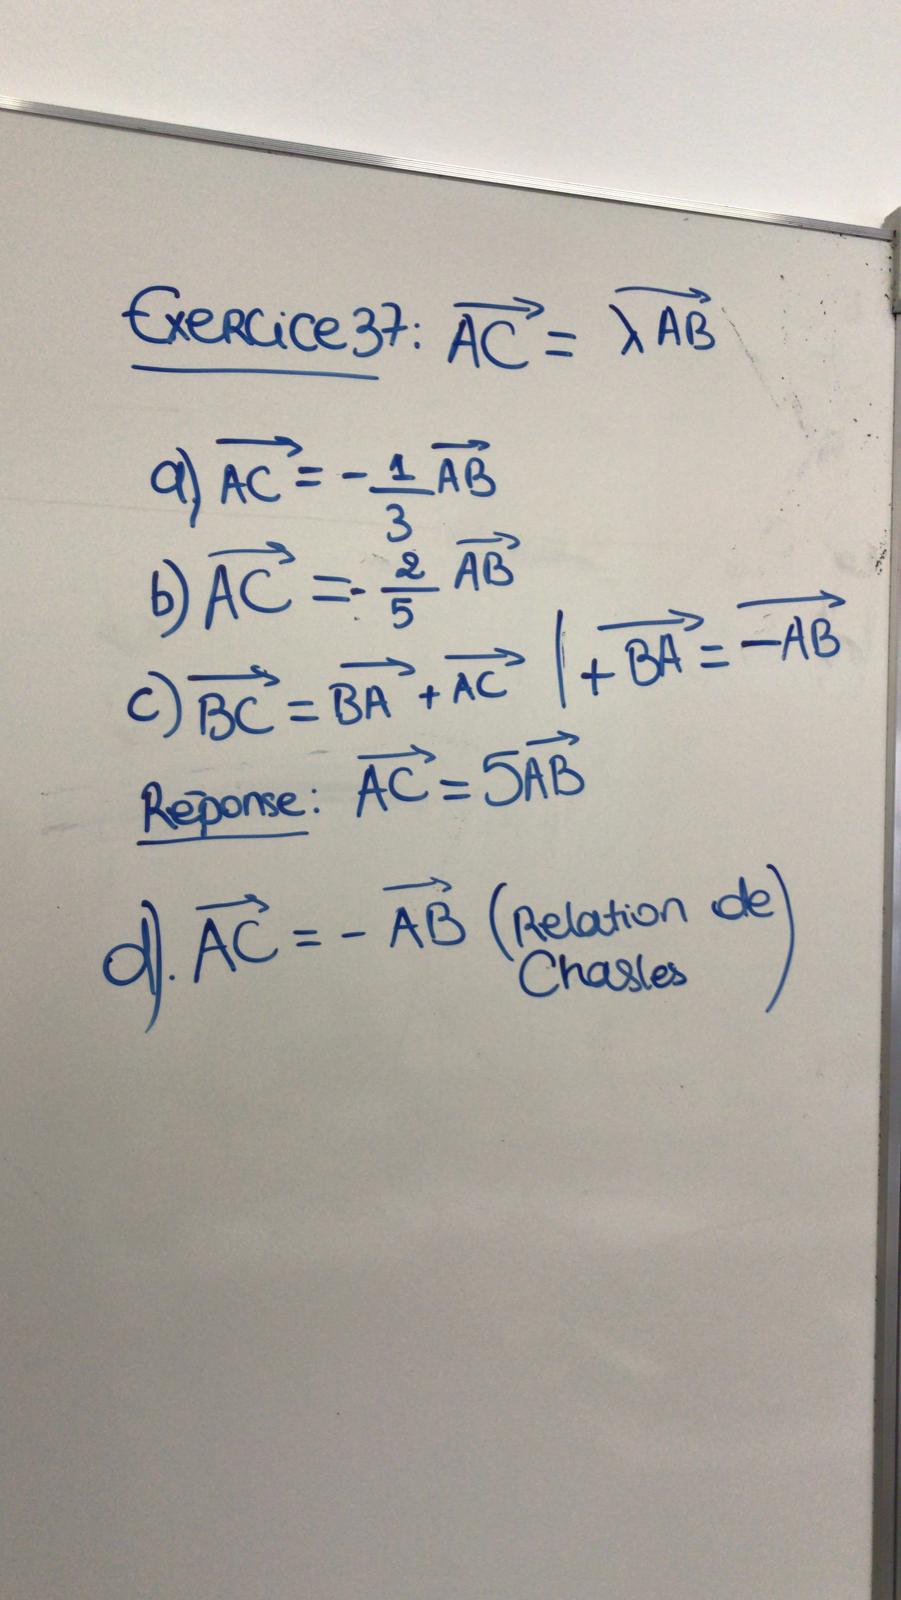 Exercice 37: AC→ = λAB→
a) AC→ = - 1/3 AB→
b) AC→ = - 2/5 AB→
c) BC→ = BA→ + AC→ | + BA→ = -AB→
Réponse: AC→ = 5AB→
d). AC→ = - AB→ (Relation de
Chasles)